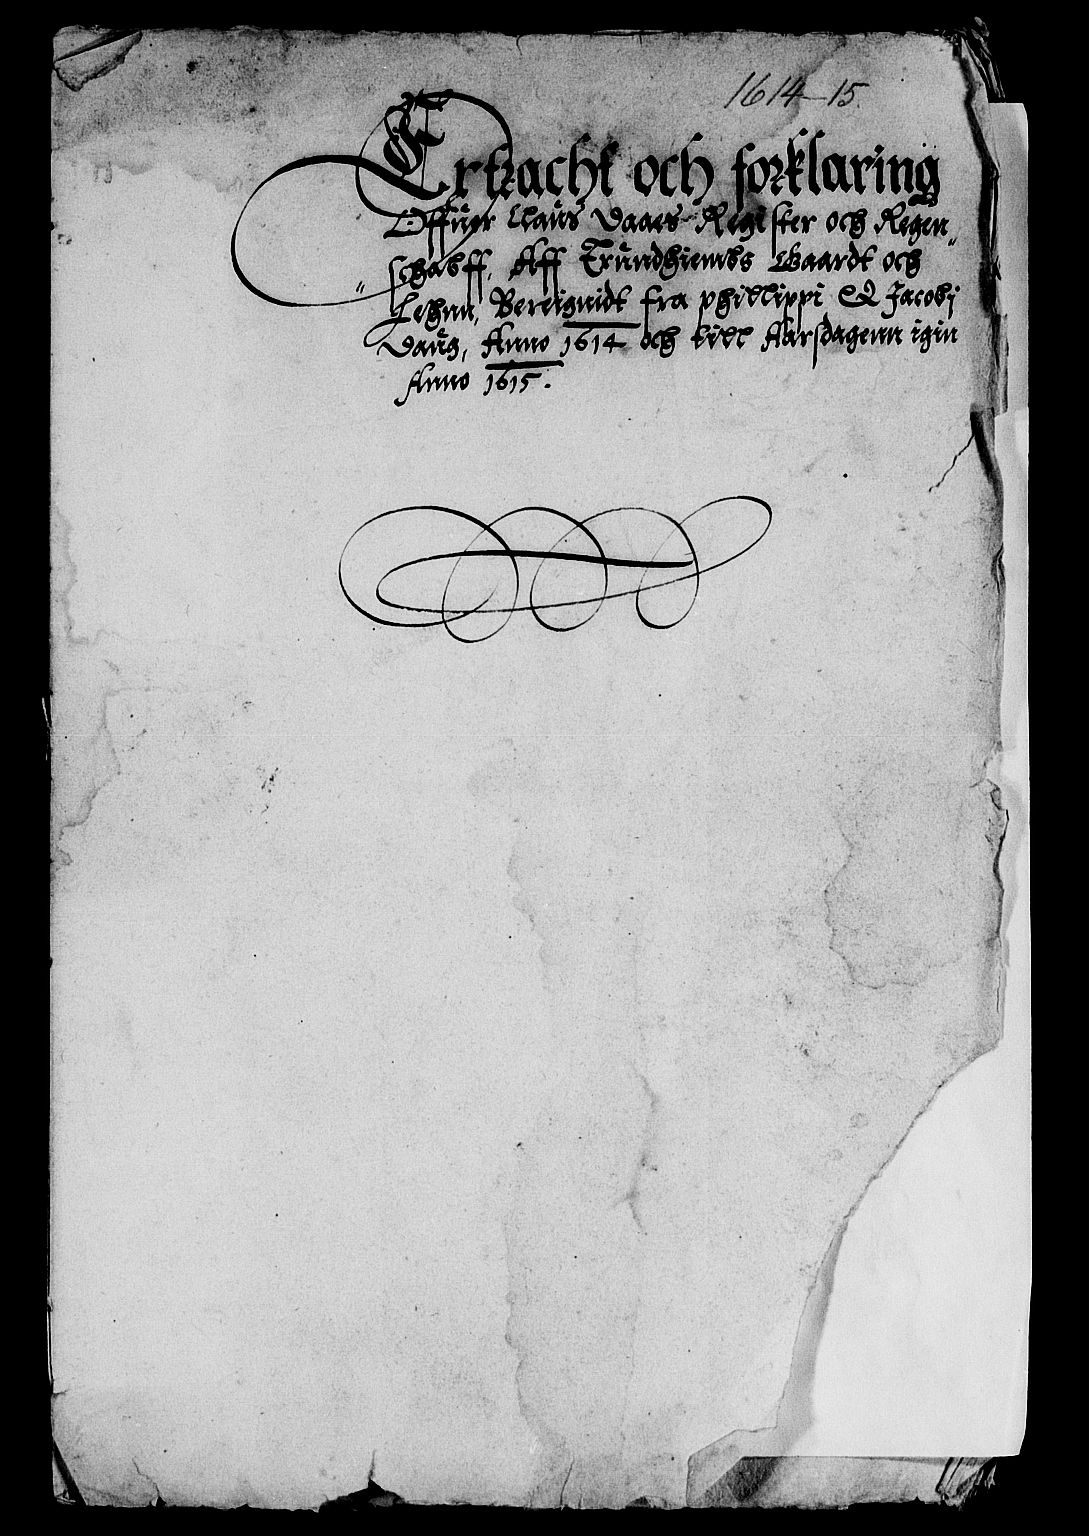 1614-15.
Extracht och forklaring
Offuer Claus Daaes Register och Regen„
„schabff, Aff Trundhiembs Gaardt och
Lehnn, Bereignidt fra Philippi & Jacobj
Daug, Anno 1614 och till Aarsdagenn igin
Anno 1615.